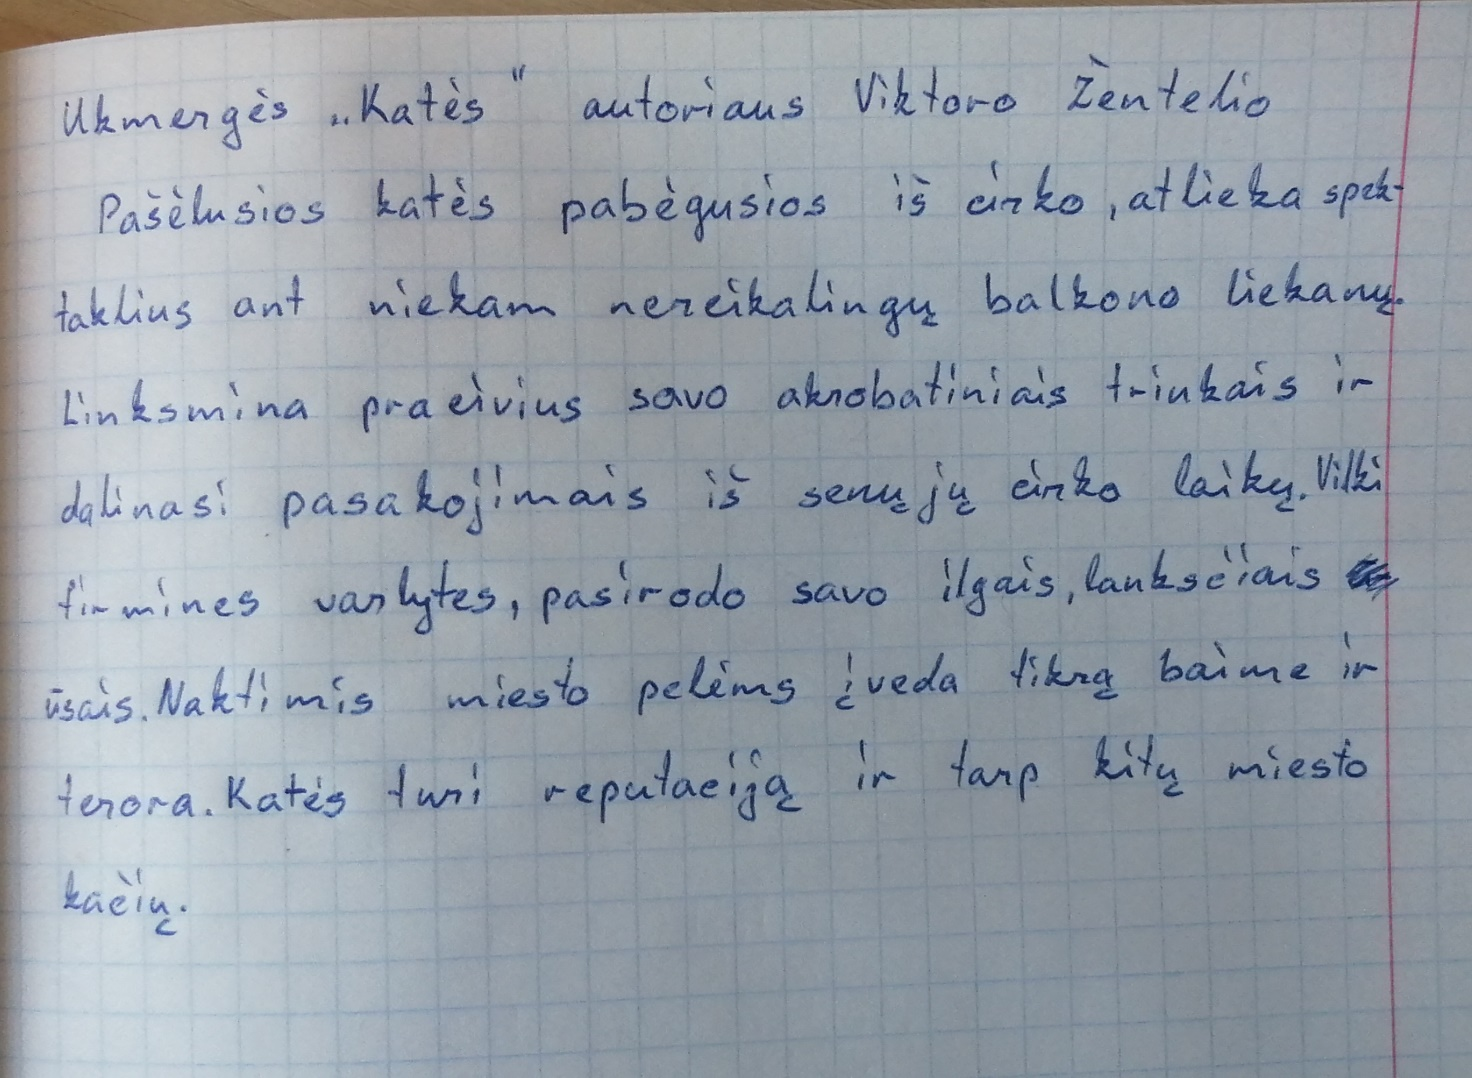 Ukmergės „Katės“ autoriaus Viktoro Žentelio
Pašėlusios katės pabėgusios iš cirko, atlieka spek-
taklius ant niekam nereikalingų balkono liekanų.
Linksmina praeivius savo akrobatiniais triukais ir
dalinasi pasakojimais iš senųjų cirko laikų. Vilki
firmines varlytes, pasirodo savo ilgais, lanksčiais
ūsais. Naktimis miesto pelėms įveda tikrą baime ir
terora. Katės turi reputaciją ir tarp kitų miesto
kačių.